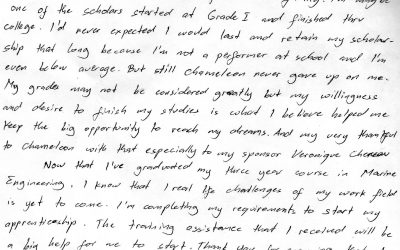 one of the scholars started at Grade I and finished thru
college. I'd never expected I would last and retain my scholar-
ship that long because I'm not a performer at school and I'm
even below average. But still Chameleon never gave up on me.
My grades may not be considered greatly but my willingness
and desire to finish my studies is what I believe helped me
keep the big opportunity to reach my dreams. And my very thankful
to chameleon with that especially to my sponsor Veronique
Now that I've graduated my three year course in Marine
Engineering. I know that I real life challenges of my work field
is yet to come. I'm completing my requirements to start my
apprenticeship. The training assistance that I received will be
a big help for me to start. Thank you